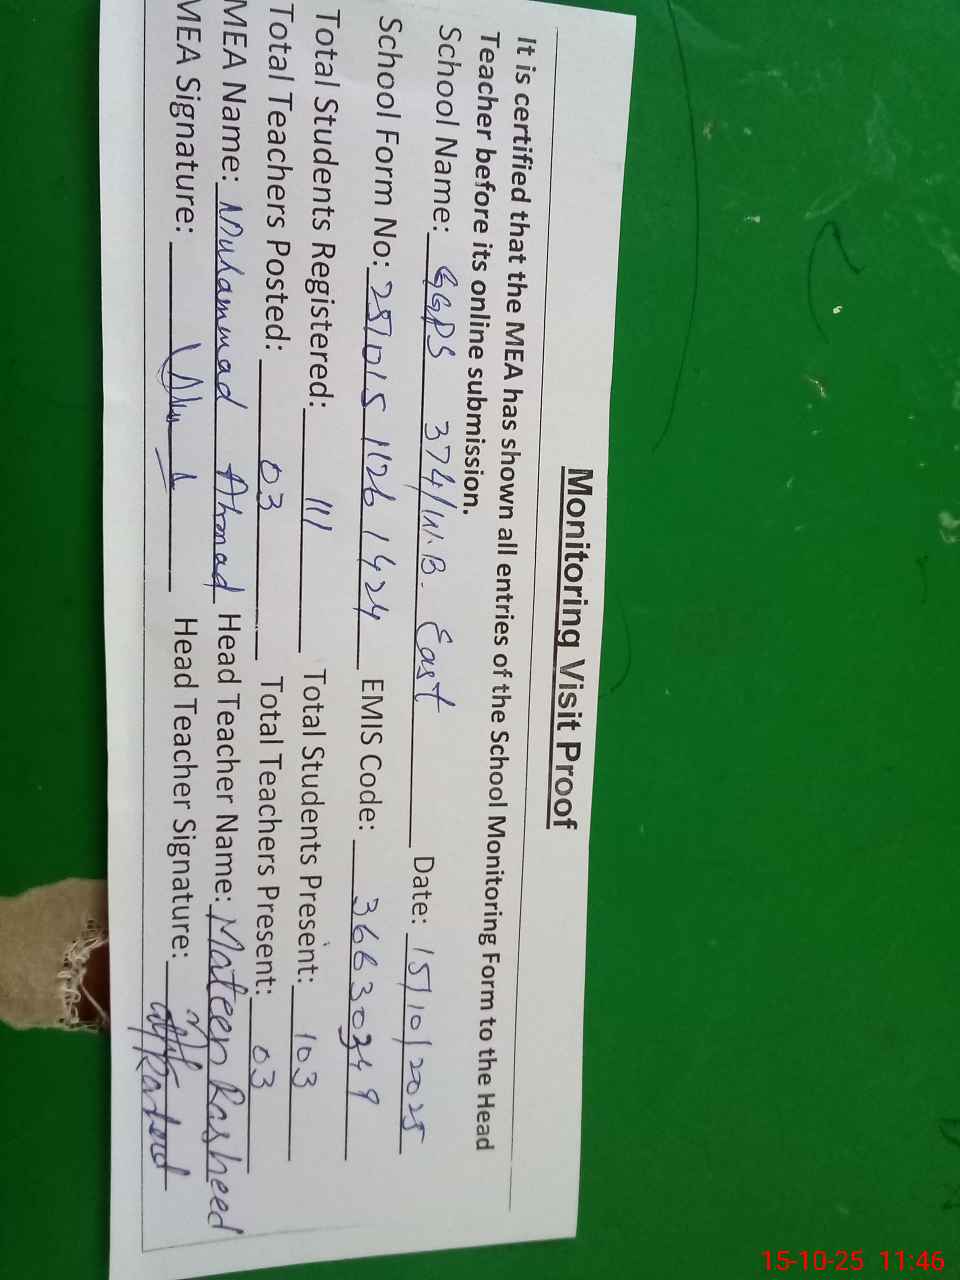 Monitoring Visit Proof
It is certified that the MEA has shown all entries of the School Monitoring Form to the Head
Teacher before its online submission.
School Name: GGPS 374/W.B. East Date: 15/10/2025
School Form No: 251015 1126 1424 EMIS Code: 36630349
Total Students Registered: 111 Total Students Present: 103
Total Teachers Posted: 03 Total Teachers Present: 03
MEA Name: Muhammad Ahmad Head Teacher Name: Mateen Rasheed
MEA Signature: Head Teacher Signature:
15-10-25 11:46